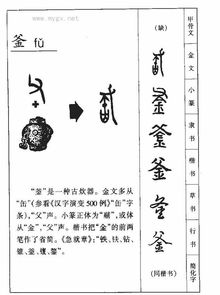 www.wygx.net
釜 fǔ
“釜”是一种古炊器。金文多从
“缶”(参看《汉字演变500例》“缶”字
条),“父”声。小篆正体为“鬴”,或体
从“金”,“父”声。楷书把“金”的前两
笔作了省简。《急就章》:“铁、钛、钻、
釜、鍑、鍪。”
(缺)
釜
釜
釜
釜
釜
(同楷书)
甲骨文
金文
小篆
隶书
楷书
草书
行书
简化字